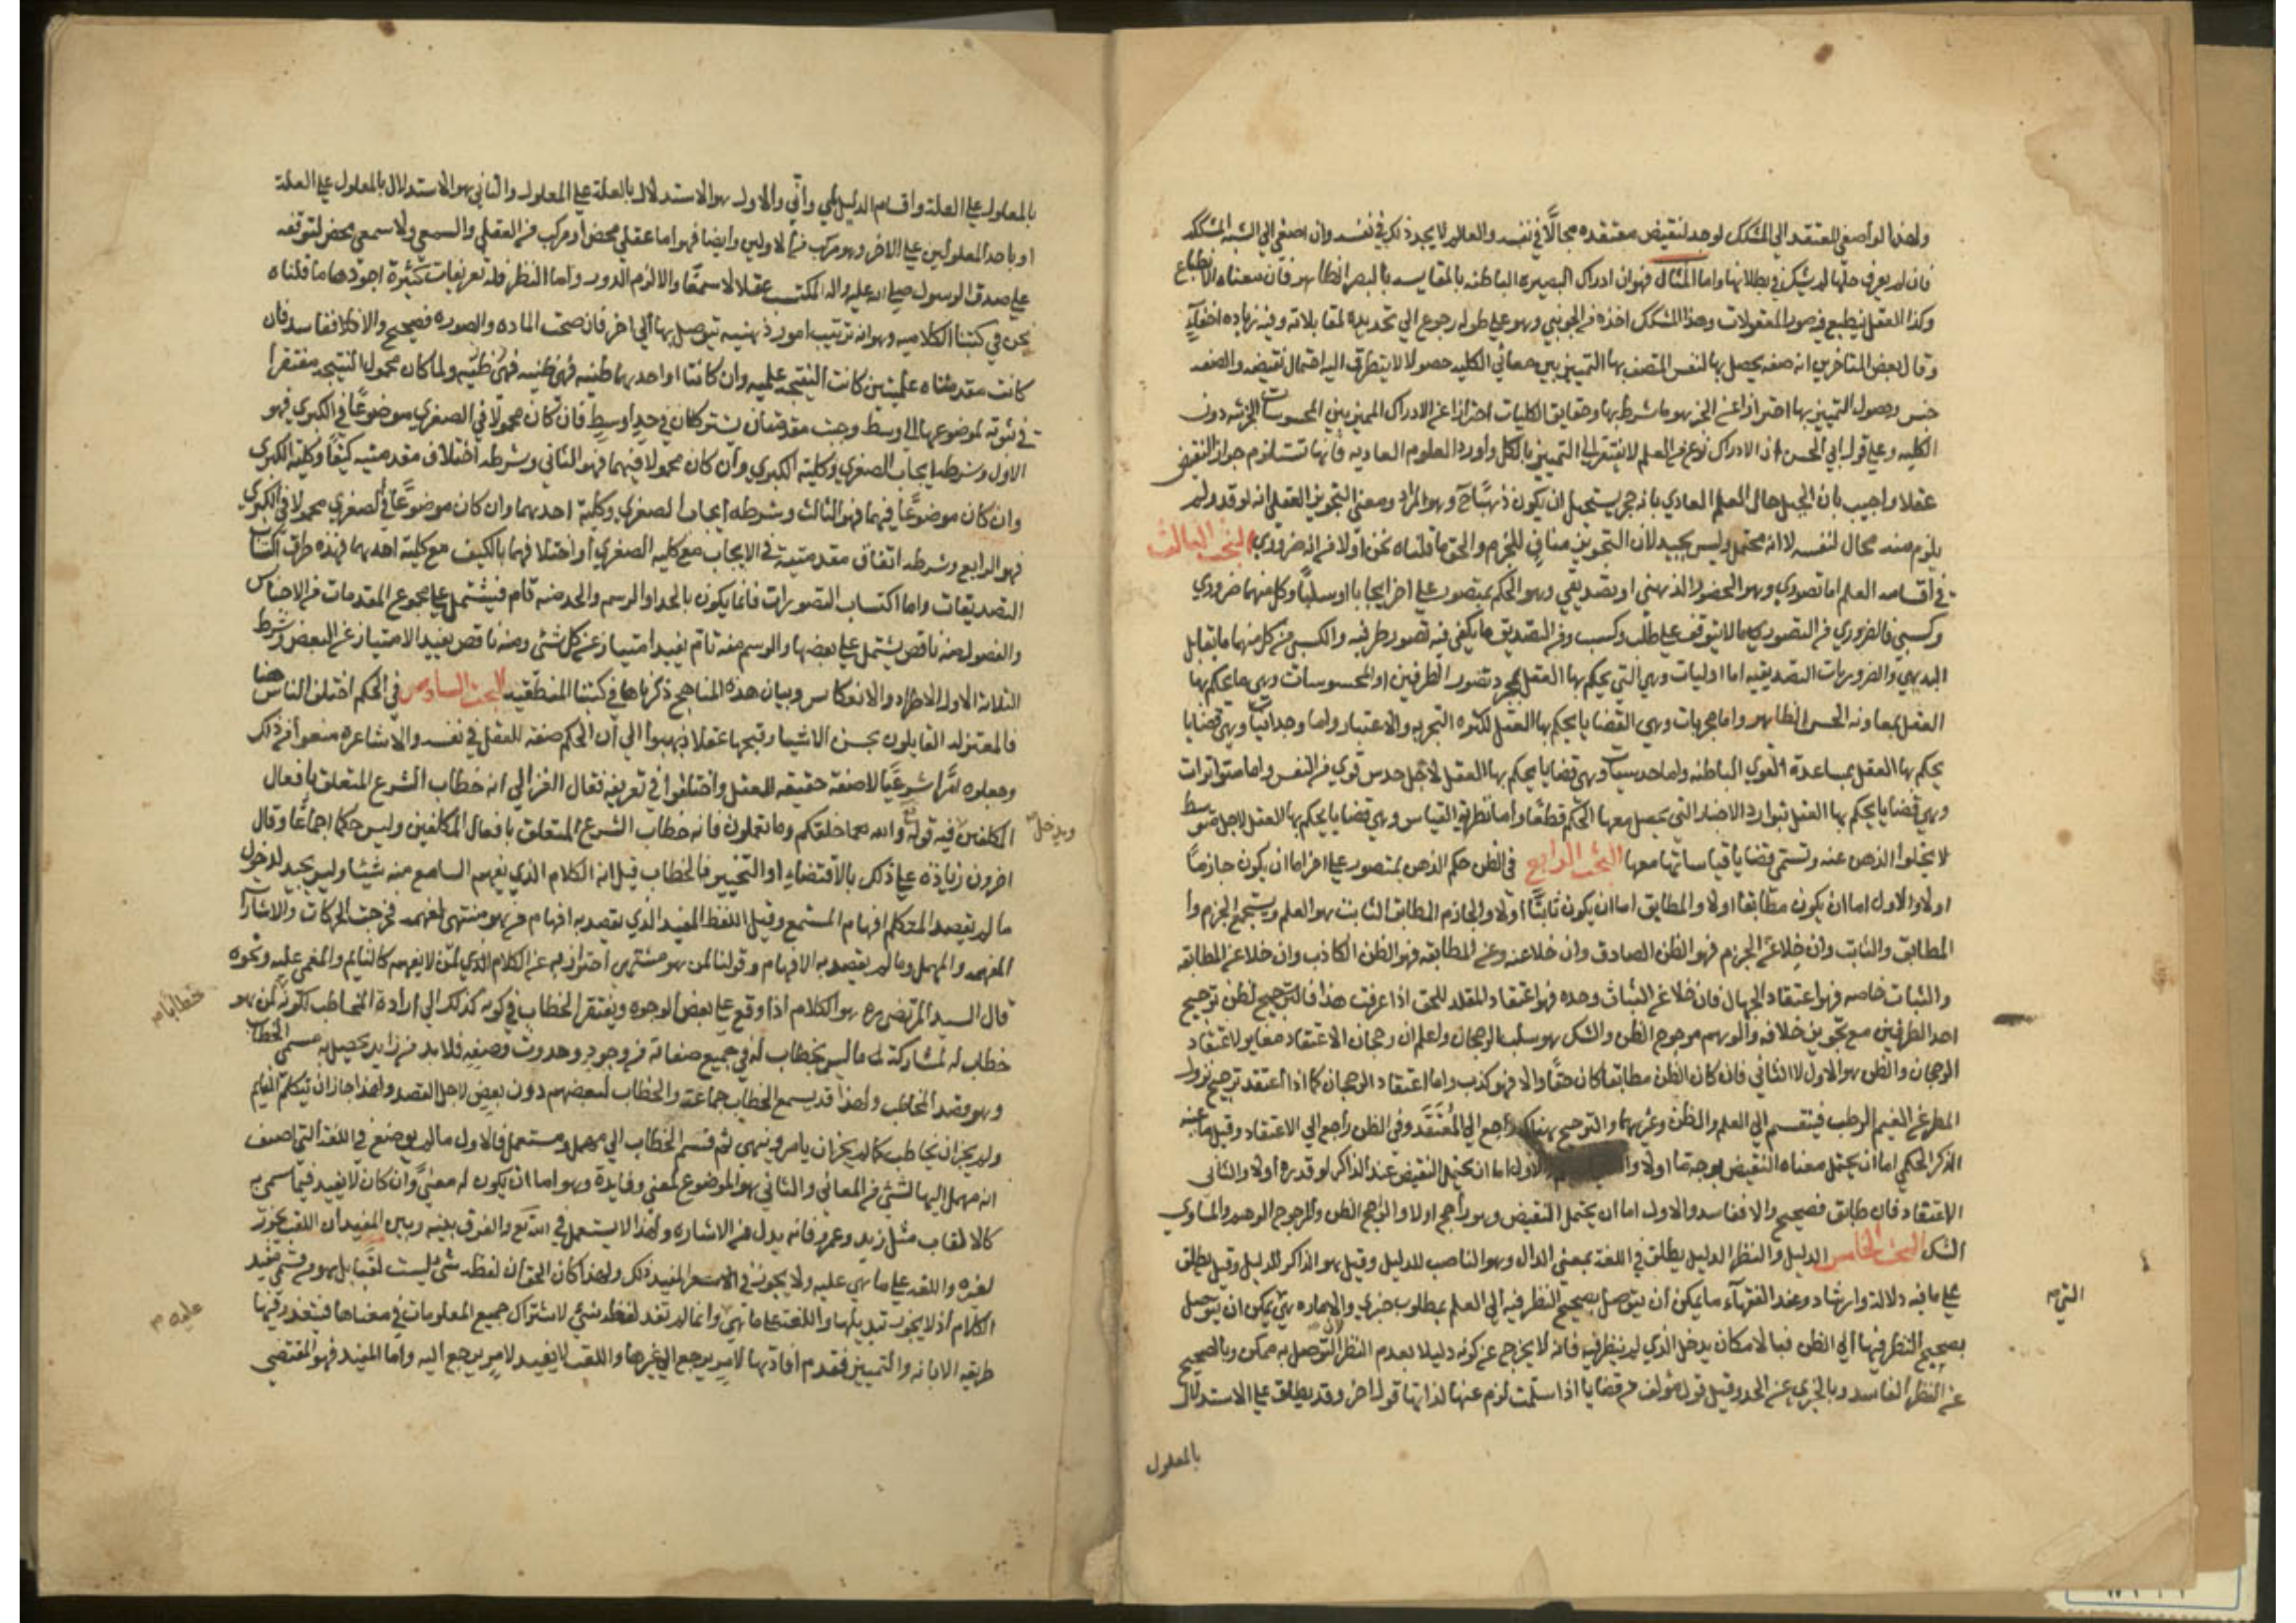 ولهذا لو أصغى المعتقد الى المشكك لوجد لنقيض معتقده مجالًا في نفسه والعالم لا يجد ذلك في نفسه وان اصغى الى الشبه المشككه
فان لم يعرف حلها لم يشك في بطلانها واما المثال فهو ان ادراك البصيره الباطنه بالمقايسه بالبصر الظاهر فان معناه الانطباع
وكذا العقل ينطبع فيه صور المعقولات وهذا المشكك اخذه من الجويني وهو على طوله رجوع الى تحديده لمقابلاته وفيه زياده اخفاء
وقال بعض المتاخرين انه صفه يحصل بها لنفس المتصف بها التمييز بين معاني الكليه حصولا لا يتطرق اليه احتمال نقيضه والصفه
جنس وحصول التمييز بها احترازا عن الحيوه وما شرط بها وحقايق الكليات احترازا عن الادراك المميز بين المحسوسات الجزئيه دون
الكليه وعلى قول ابي الحسن ان الادراك نوع من العلم لا يفتقر الى التمييز بالكلى وأورد العلوم العاديه فانها تستلزم جواز النقيض
عقلا واجيب بان الجبل حال العلم العادي بانه حجر يستحيل ان يكون ذهبًا ح وهو المراد ومعنى التجويز العقلي انه لو قدر لم
يلزم منه محال لنفسه لا انه محتمل وليس بجيد لأن التجويز منافٍ للجزم والحق ما قلناه نحن اولا من انه ضروري البحث الثالث
في أقسامه العلم اما تصوري وهو الحضور الذهني او تصديقي وهو الحكم بمتصور على اخر ايجابا او سلبًا وكل منهما ضروري
وكسبي فالضروري من التصوري ما لا يتوقف على طلب وكسب ومن التصديق ما يكفي فيه تصور طرفيه والكسبي من كل منهما ما يقابل
البديهي والضروريات التصديقيه اما اوليات وهي التي يحكم بها العقل بمجرد تصور الطرفين او المحسوسات وهي ما يحكم بها
العقل بمعاونه الحس الظاهر واما مجربات وهي القضايا يحكم بها العقل لكثره التجربه والاعتبار واما وجدانيات وهي قضايا
يحكم بها العقل بمساعدة القوي الباطنه واما حدسيات وهي قضايا يحكم بها العقل لاجل حدس قوي من النفس واما متواترات
وهي قضايا يحكم بها العقل بتوارد الاخبار التي يحصل معها الحكم قطعًا واما نظريه القياس وهي قضايا يحكم بها العقل لاجل متوسط
لا يخلوا الذهن عنه وتسمى قضايا قياساتها معها البحث الرابع في الظن حكم الذهن بمتصور على اخر اما ان يكون جازمًا
اولا والاول اما ان يكون مطابقا اولا والمطابق اما ان يكون ثابتًا اولا والجازم المطابق الثابت هو العلم ويستجمع الجزم وا
المطابق والثابت وان خلا عن الجزم فهو الظن الصادق وان خلا عنه وعن المطابقه فهو الظن الكاذب وان خلا عن المطابقه
والثبات خاصه فهو اعتقاد الجهال فان خلا عن الثبات وحده فهو اعتقاد المقلد للحق اذا عرفت هذا فالترجيح لظن ترجيح
احد الطرفين مع تجويز خلافه والوهم مرجوح الظن والشك هو سلب الرجحان واعلم ان رجحان الاعتقاد مغاير لاعتقاد
الرجحان والظن هو الاول لا الثاني فان كان الظن مطابقا كان حقًا والا فهو كذب واما اعتقاد الرجحان كما اذا اعتقد ترجيح نزول
المطر عن الغيم الرطب فينقسم الى العلم والظن وغيرهما والترجيح هناك راجع الى المُعْتَقَد وفي الظن راجع الى الاعتقاد وقيل ما عنه
الذكر الحكمي اما ان يحتمل معناه النقيض بوجه ما اولا والاول اما ان يحتمل النقيض عند الذاكر لو قدره اولا والثاني
الاعتقاد فان طابق فصحيح والا ففاسد والاول اما ان يحتمل النقيض وهو راجح اولا والراجح الظن والمرجوح الوهم والمساوي
الشك البحث الخامس الدليل والنظر الدليل يطلق في اللغة بمعنى الدال وهو الناصب للدليل وقيل هو الذاكر للدليل وقيل يطلق
على ما فيه دلالة وارشاد وعند الفقهآء ما يمكن أن يتوصل بصحيح النظر فيه الى العلم بمطلوب خبري والاماره هي يمكن ان يتوصل
التي
بصحيح النظر فيها الى الظن فبالامكان يدخل الذي لم ينظر فيه فانه لا يخرج عن كونه دليلا بعدم النظر لان التوصل به ممكن وبالصحيح
عن النظر الفاسد وبالخبري عن الحد وقيل قول مؤلف من قضايا اذا سلمت لزم عنها لذاتها قول اخر وقد يطلق على الاستدلال
بالمعلول
بالمعلول على العلة واقسام الدليل لمي وأني والاول هو الاستدلال بالعلة على المعلول والثاني هو الاستدلال بالمعلول على العلة
او باحد المعلولين على الاخر وهو مركب من الاولين وايضا فهو اما عقلي محض او مركب من العقلي والسمعي ولا سمعي محض لتوقفه
على صدق الرسول صلى الله عليه واله المكتسب عقلا لا سمعًا والا لزم الدور واما النظر فله تعريفات كثيرة اجودها ما قلناه
نحن في كتبنا الكلاميه وهو انه ترتيب امور ذهنيه يتوصل بها الى اخر فان صحت الماده والصوره فصحيح والا فلا ففاسد فان
كانت مقدمتاه علميتين كانت النتيجه علميه وان كانتا او احديهما ظنيه فهي ظنيه ولما كان محمول النتيجه مفتقرا
في ثبوته لموضوعها الى وسط وجبت مقدمتان يشتركان في حد أوسط فان كان محمولا في الصغري موضوعًا في الكبري فهو
الاول وشرطه ايجاب الصغري وكلية الكبري وان كان محمولا فيهما فهو الثاني وشرطه اختلاف مقدمتيه كيفًا وكلية الكبري
وان كان موضوعًا فيهما فهو الثالث وشرطه ايجاب الصغري وكلية احديهما وان كان موضوعًا في الصغري محمولا في الكبري
فهو الرابع وشرطه اتفاق مقدمتيه في الايجاب مع كلية الصغري أو اختلافهما بالكيف مع كلية احديهما فهذه طرق اكتساب
التصديقات واما اكتساب التصورات فانما يكون بالحد او الرسم والحد منه تام فيشتمل على مجموع المقدمات من الاجناس
والفصول ومنه ناقص يشتمل على بعضها والرسم منه تام يفيد امتيازا عن كل شئ ومنه ناقص يفيد الامتياز عن البعض وشرط
الثلاثة الاول الاطراد والانعكاس وبيان هذه المناهج ذكرناها في كتبنا المنطقيه البحث السادس في الحكم اختلف الناس هنا
فالمعتزله القايلون بحسن الاشيا وقبحها عقلا ذهبوا الى أن الحكم صفه للعقل في نفسه والاشاعره منعوا من ذلك
وجعلوه امرًا شرعيًا لا صفه حقيقيه للعقل واختلفوا في تعريفه فقال الغزالي انه خطاب الشرع المتعلق بافعال
المكلفين فيه قوله تع والله خلقكم وما تعملون فانه خطاب الشرع المتعلق بافعال المكلفين وليس حكما اجماعًا وقال
ويدخل
اخرون زيادة على ذلك بالاقتضاء او التخيير فالخطاب قيل انه الكلام الذي يفهم السامع منه شيئا وليس بجيد لدخول
ما لم يقصد المتكلم افهام المستمع وقيل اللفظ المفيد الذي يقصد به افهام من هو منتهى لفهمه فخرجت الحركات والاشارات
المفهمه والمهمل وما لم يقصد به الافهام وقولنا لمن هو متهيئ احتراز به عن الكلام الذي لمن لا يفهم كالنايم والمغمى عليه ونحوه
قال السيد المرتضى ره هو الكلام اذا وقع على بعض الوجوه ويفتقر الخطاب في كونه كذلك الى ارادة المخاطب لكونه لمن هو
خطابا
خطاب له لمشاركة له ما ليس بخطاب له في جميع صفاته من وجود وحدوث وصيغه فلا بد من زايد يحصل به مسمى الخطاب
وهو قصد المخاطب ولهذا قد يسمع الخطاب جماعة والخطاب لبعضهم دون بعض لاجل القصد ولهذا جاز ان يتكلم النايم
ولم يجز ان يخاطب كما لم يجز ان يامر وينهى ثم قسم الخطاب الى مهمل ومستعمل فالاول ما لم يوضع في اللغة التي اضيف
انه مهمل اليها لشئ من المعاني والثاني هو الموضوع لمعنى وفايدة وهو اما ان يكون له معنىً وان كان لا يفيد فيما سمى به
كالالقاب مثل زيد وعمرو فانه بدل من الاشاره ولهذا لا يستعمل في الله تع والفرق بينه وبين المفيد أن اللقب يجوز
لغيره واللغه على ما هي عليه ولا يجوز في المفيد ذلك ولهذا كان الحق ان لفظه شئ ليست لقبًا بل هو من قسم مفيد
الكلام اذ لا يجوز تبديلها واللغة على ما هي وانما لم تفد لفظه شئ لاشتراك جميع المعلومات في معناها فيتعذر فيها
عليه
طريقه الابانه والتمييز فقدم افادتها لامر يرجع الى غيرها واللقب لا يفيد لامر يرجع اليه واما المفيد فهو المقتضي